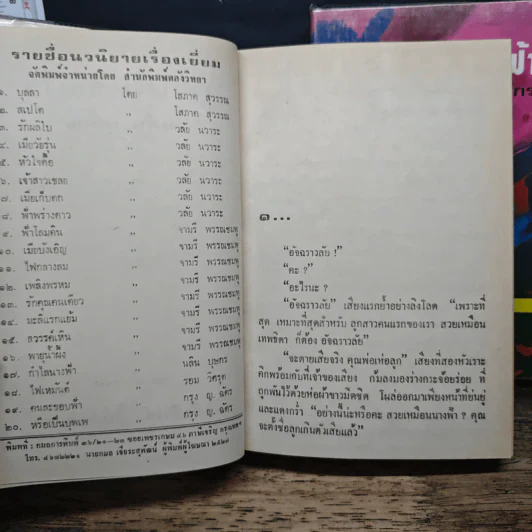 รายชื่อนวนิยายเรื่องเยี่ยม
จัดพิมพ์จำหน่ายโดย สำนักพิมพ์คลังวิทยา
๑. บุลลา โดย โสภาค สุวรรณ
๒. สเปโต ,, โสภาค สุวรรณ
๓. รักผลิใบ ,, วลัย นวาระ
๔. เมียวัยรุ่น ,, วลัย นวาระ
๕. หัวใจคือ ,, วลัย นวาระ
๖. เจ้าสาวเชลย ,, วลัย นวาระ
๗. เมียเก็บตก ,, วลัย นวาระ
๘. ฟ้าพร่างดาว ,, วลัย นวาระ
๙. ฟ้าโลมดิน ,, จามรี พรรณชมพู
๑๐. เมียบังเอิญ ,, จามรี พรรณชมพู
๑๑. ไฟกลางลม ,, จามรี พรรณชมพู
๑๒. เพลิงพรหม ,, จามรี พรรณชมพู
๑๓. รักคุณคนเดียว ,, จามรี พรรณชมพู
๑๔. มะลิแรกแย้ม ,, จามรี พรรณชมพู
๑๕. สวรรค์เหิน ,, จามรี พรรณชมพู
๑๖. พายุน้ำผึ้ง ,, นลิน บุษกร
๑๗. กำไลนางฟ้า ,, รอม วิศรุต
๑๘. ไฟเหมันต์ ,, กรุง ญ. ฉัตร
๑๙. คนละขอบฟ้า ,, กรุง ญ. ฉัตร
๒๐. หรือเป็นบุพเพ ,,
โทร. ๔๖๘๒๒๒๑ นายกมล ผู้พิมพ์ผู้โฆษณา ๒๕๒๗
๑...
“อัจฉราวลัย !”
“คะ ?”
“อะไรนะ ?”
“อัจฉราวลัย” เสียงแรกย้ำอย่างลิงโลด “เพราะที่
สุด เหมาะที่สุดสำหรับ ลูกสาวคนแรกของเรา สวยเหมือน
เทพธิดา ก็ต้อง อัจฉราวลัย”
“จะตายเสียจริง คุณพ่อเห่อลูก” เสียงที่สองหัวเราะ
คิกพร้อมกับที่เจ้าของเสียง ก้มลงมองร่างกระจ้อยร่อย ที่
ถูกพันไว้ด้วยห่อผ้าขาวมิดชิด โผล่ออกมาเพียงหน้าที่ย่นยู่
และแดงก่ำ “อย่างนี้น่ะหรือคะ สวยเหมือนนางฟ้า ? คุณ
จะตั้งชื่อลูกเกินตัวเสียแล้ว”